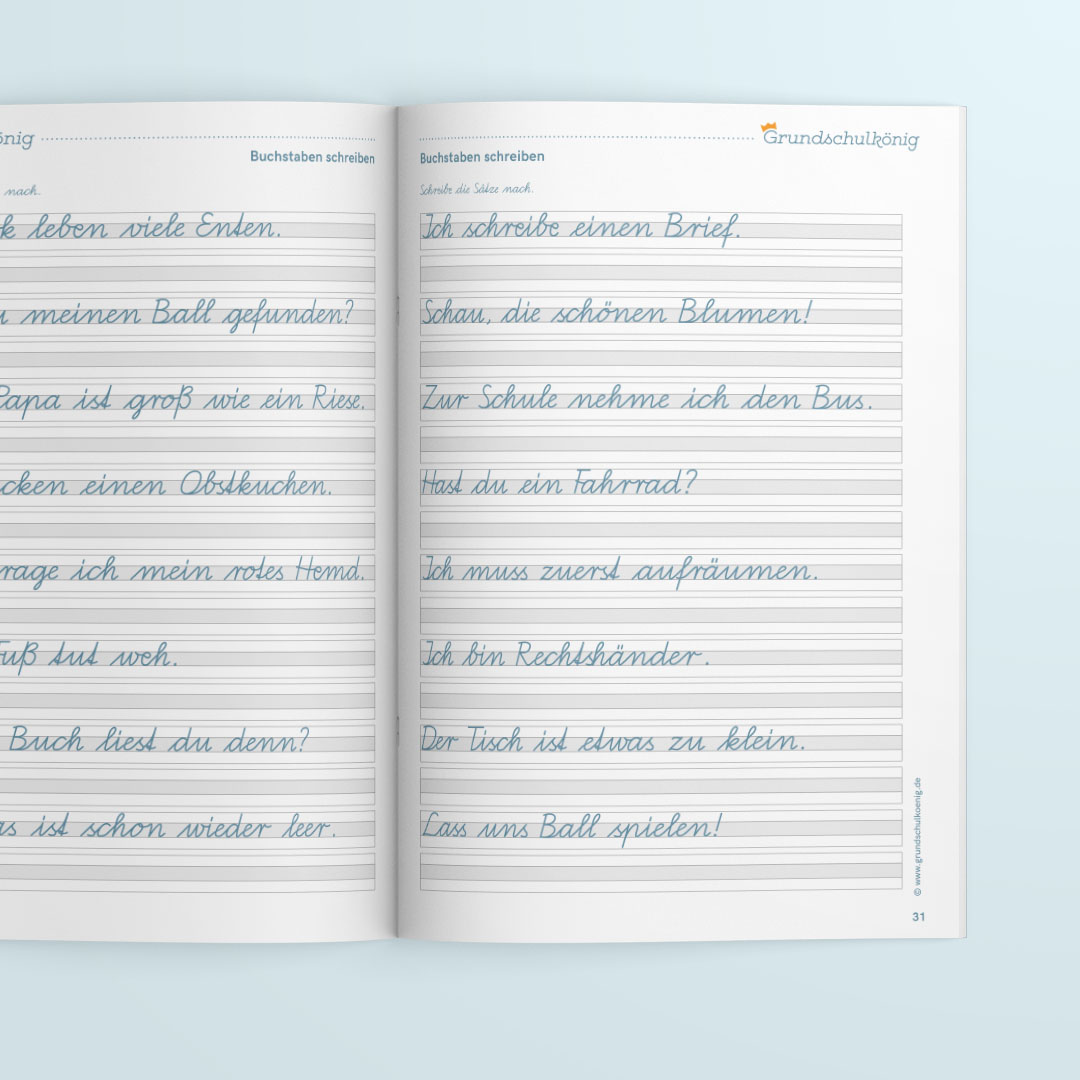 önig
Buchstaben schreiben
nach.
k leben viele Enten.
u meinen Ball gefunden?
Papa ist groß wie ein Riese.
cken einen Obstkuchen.
rage ich mein rotes Hemd.
Fuß tut weh.
Buch liest du denn?
as ist schon wieder leer.
Grundschulkönig
Buchstaben schreiben
Schreibe die Sätze nach.
Ich schreibe einen Brief.
Schau, die schönen Blumen!
Zur Schule nehme ich den Bus.
Hast du ein Fahrrad?
Ich muss zuerst aufräumen.
Ich bin Rechtshänder.
Der Tisch ist etwas zu klein.
Lass uns Ball spielen!
© www.grundschulkoenig.de
31